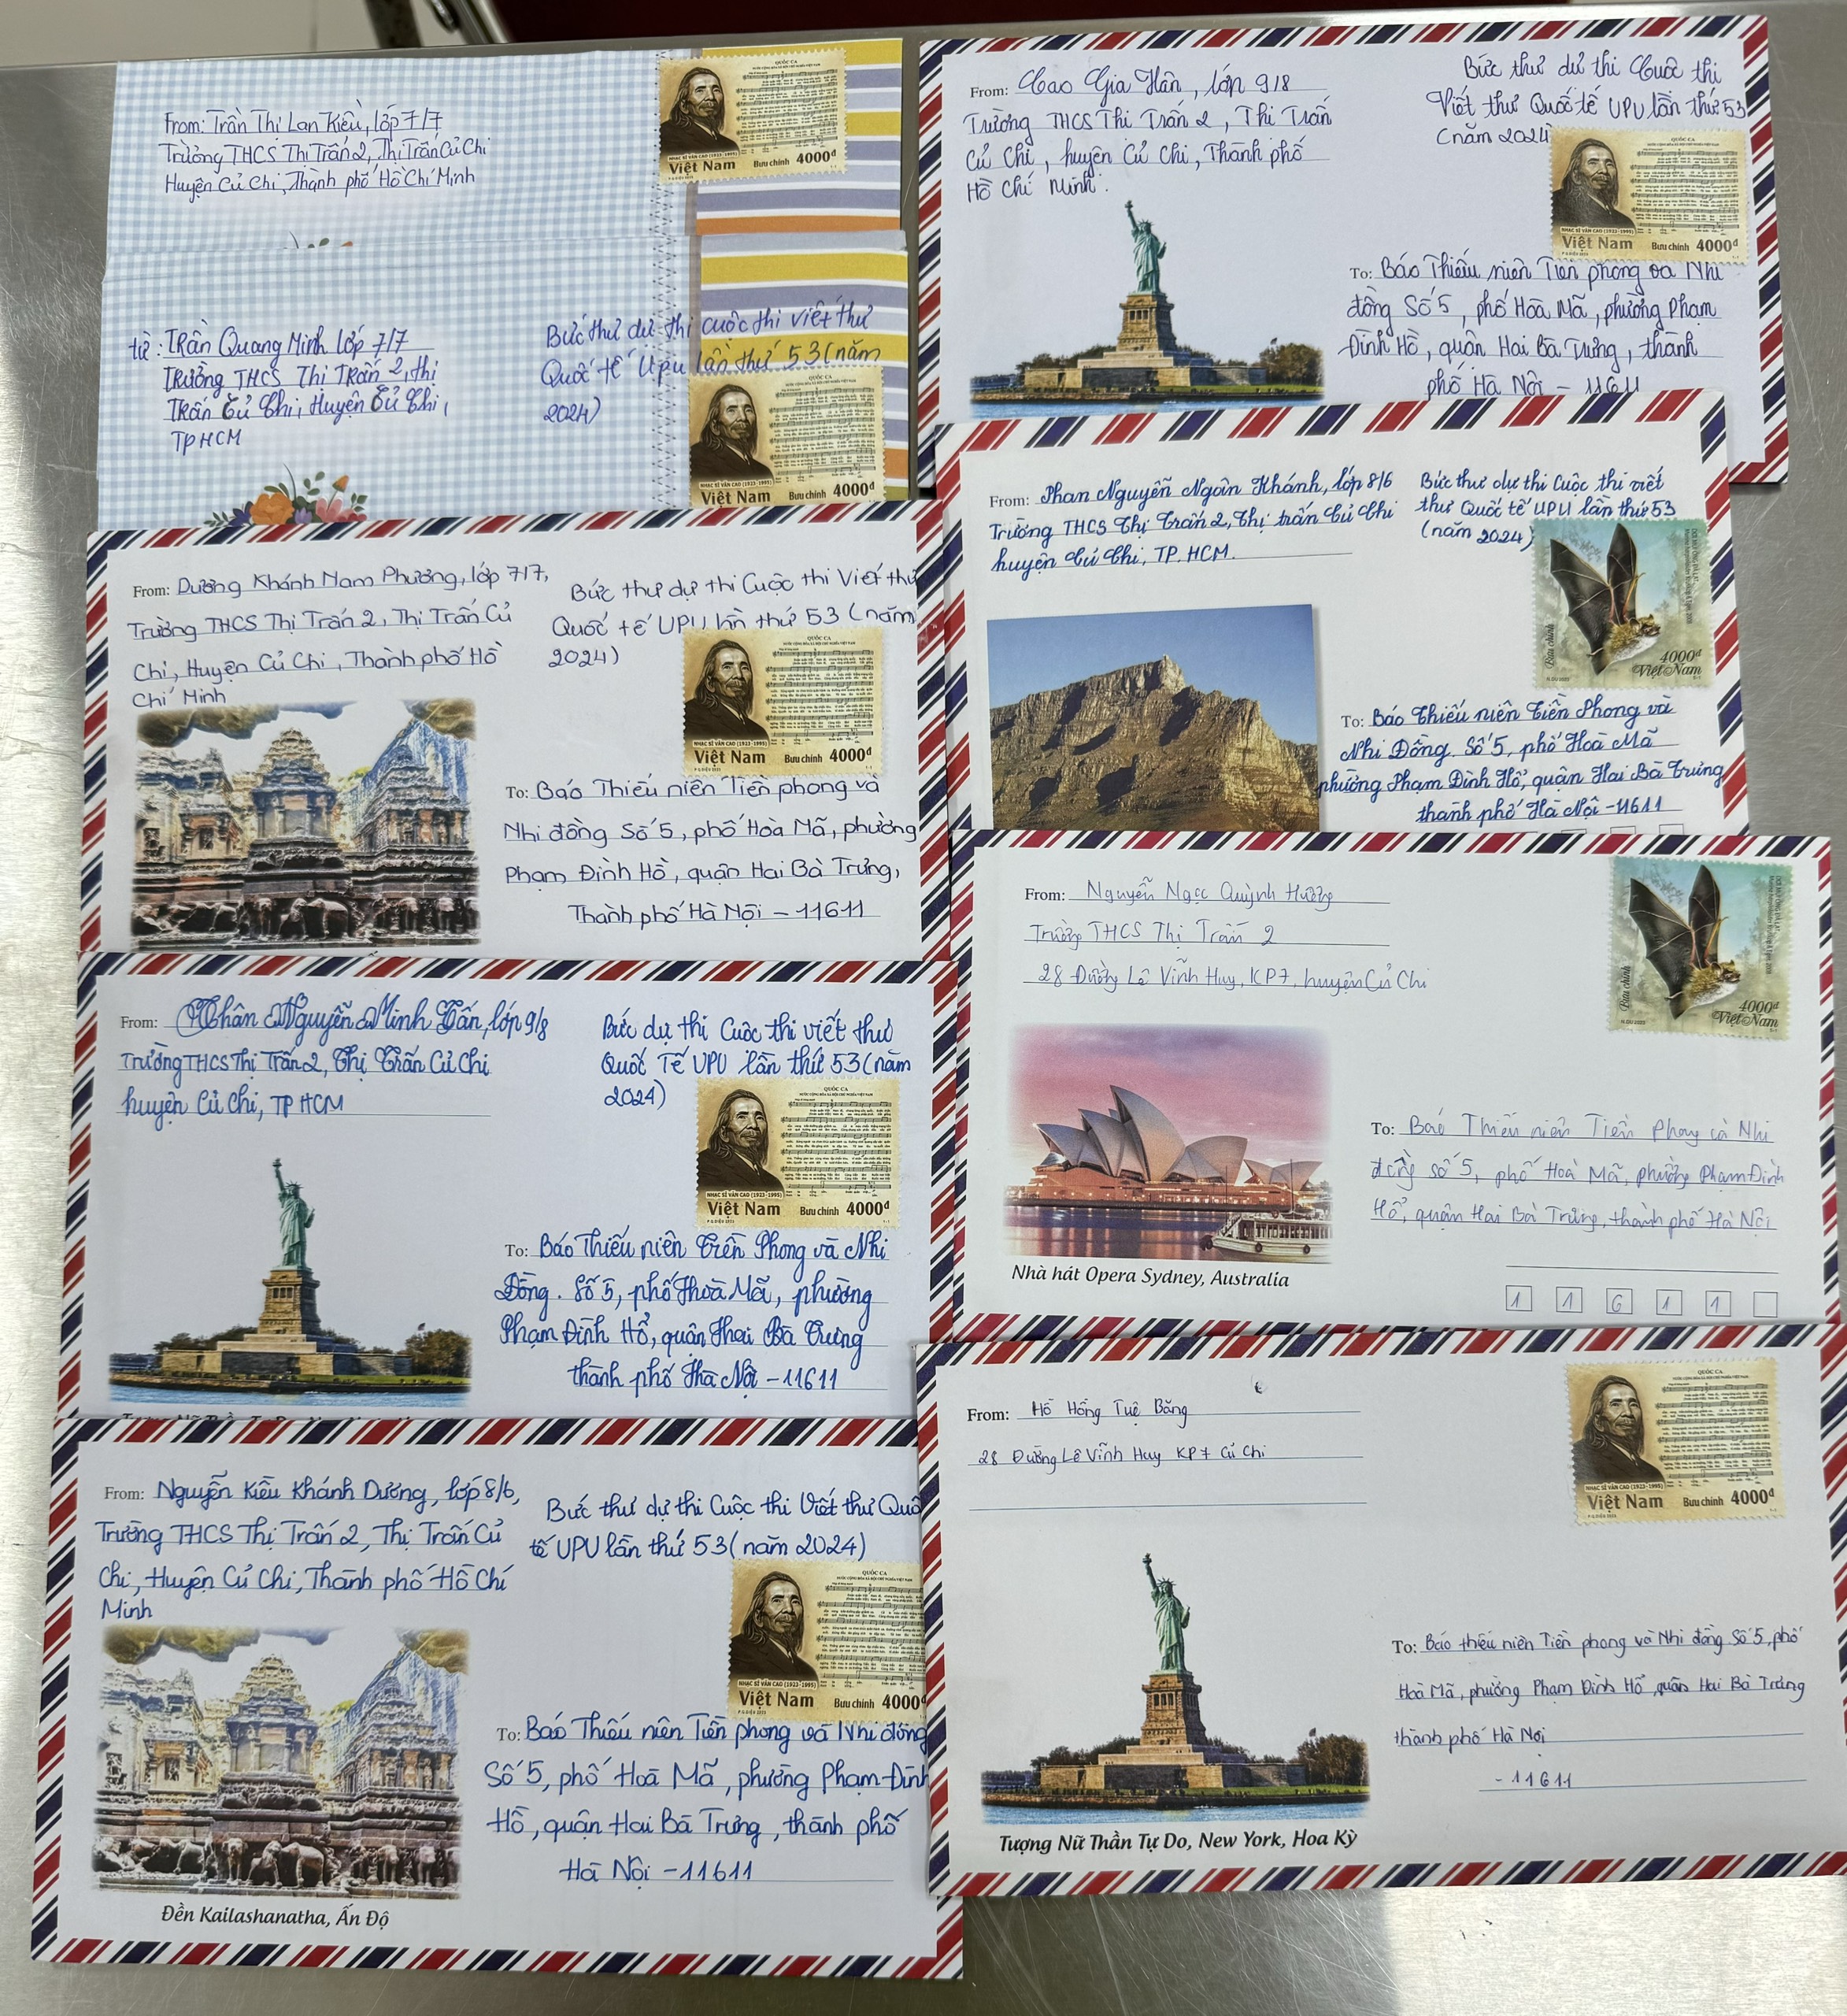 From: Trần Thị Lan Kiều, lớp 7/7
Trường THCS Thị Trấn 2, Thị Trấn Củ Chi
Huyện Củ Chi, Thành phố Hồ Chí Minh
QUỐC CA
NHẠC SĨ VĂN CAO (1923-1995)
Việt Nam Bưu chính 4000đ
từ: Trần Quang Minh lớp 7/7
Trường THCS Thị Trấn 2, thị
Trấn Củ Chi, Huyện Củ Chi,
TPHCM
Bức thư dự thi cuộc thi viết thư
Quốc tế Upu lần thứ 53 (năm
2024)
QUỐC CA
NHẠC SĨ VĂN CAO (1923-1995)
Việt Nam Bưu chính 4000đ
From: Dương Khánh Nam Phương, lớp 7/7,
Trường THCS Thị Trấn 2, Thị Trấn Củ
Chi, Huyện Củ Chi, Thành phố Hồ
Chí Minh
Bức thư dự thi Cuộc thi Viết thư
Quốc tế UPU lần thứ 53 (năm
2024)
QUỐC CA
NHẠC SĨ VĂN CAO (1923-1995)
Việt Nam Bưu chính 4000đ
To: Báo Thiếu niên Tiền phong và
Nhi đồng Số 5, phố Hoà Mã, phường
Phạm Đình Hồ, quận Hai Bà Trưng,
Thành phố Hà Nội - 11611
From: Thân Nguyễn Minh Tấn, lớp 9/8
Trường THCS Thị Trấn 2, Thị Trấn Củ Chi
huyện Củ Chi, TP HCM
Bức dự thi Cuộc thi viết thư
Quốc Tế UPU lần thứ 53 (năm
2024)
QUỐC CA
NHẠC SĨ VĂN CAO (1923-1995)
Việt Nam Bưu chính 4000đ
To: Báo Thiếu niên Tiền Phong và Nhi
Đồng. Số 5, phố Hoà Mã, phường
Phạm Đình Hổ, quận Hai Bà Trưng
thành phố Hà Nội - 11611
From: Nguyễn Kiều Khánh Dương, lớp 8/6,
Trường THCS Thị Trấn 2, Thị Trấn Củ
Chi, Huyện Củ Chi, Thành phố Hồ Chí
Minh
Bức thư dự thi Cuộc thi Viết thư Quố
tế UPU lần thứ 53 (năm 2024)
QUỐC CA
NHẠC SĨ VĂN CAO (1923-1995)
Việt Nam Bưu chính 4000đ
To: Báo Thiếu niên Tiền phong và Nhi đồng
Số 5, phố Hoà Mã, phường Phạm Đình
Hồ, quận Hai Bà Trưng, thành phố
Hà Nội - 11611
Đền Kailashanatha, Ấn Độ
From: Cao Gia Hân, lớp 9/8
Trường THCS Thị Trấn 2, Thị Trấn
Củ Chi, huyện Củ Chi, Thành phố
Hồ Chí Minh.
Bức thư dự thi Cuộc thi
Viết thư Quốc tế UPU lần thứ 53
(năm 2024
QUỐC CA
NHẠC SĨ VĂN CAO (1923-1995)
Việt Nam Bưu chính 4000đ
To: Báo Thiếu niên Tiền phong và Nhi
đồng Số 5, phố Hòa Mã, phường Phạm
Đình Hồ, quận Hai Bà Trưng, thành
phố Hà Nội - 11611
From: Phan Nguyễn Ngân Khánh, lớp 8/6
Trường THCS Thị Trấn 2, Thị trấn Củ Chi
huyện Củ Chi, TP. HCM.
Bức thư dự thi Cuộc thi viết
thư Quốc tế UPU lần thứ 53
(năm 2024)
Bưu chính
4000đ
Việt Nam
To: Báo Thiếu niên Tiền Phong và
Nhi Đồng. Số 5, phố Hoà Mã
phường Phạm Đình Hổ, quận Hai Bà Trưng
thành phố Hà Nội - 11611
From: Nguyễn Ngọc Quỳnh Hương
Trường THCS Thị Trấn 2
28 Đường Lê Vĩnh Huy, KP7, huyện Củ Chi
Bưu chính
4000đ
Việt Nam
To: Báo Thiếu niên Tiền Phong và Nhi
đồng số 5, phố Hoà Mã, phường Phạm Đình
Hổ, quận Hai Bà Trưng, thành phố Hà Nội
1 1 6 1 1
Nhà hát Opera Sydney, Australia
From: Hồ Hồng Tuệ Băng
28 Đường Lê Vĩnh Huy KP7 Củ Chi
QUỐC CA
NHẠC SĨ VĂN CAO (1923-1995)
Việt Nam Bưu chính 4000đ
To: Báo thiếu niên Tiền phong và Nhi đồng Số 5, phố
Hoà Mã, phường Phạm Đình Hổ, quận Hai Bà Trưng
thành phố Hà Nội
- 11611
Tượng Nữ Thần Tự Do, New York, Hoa Kỳ